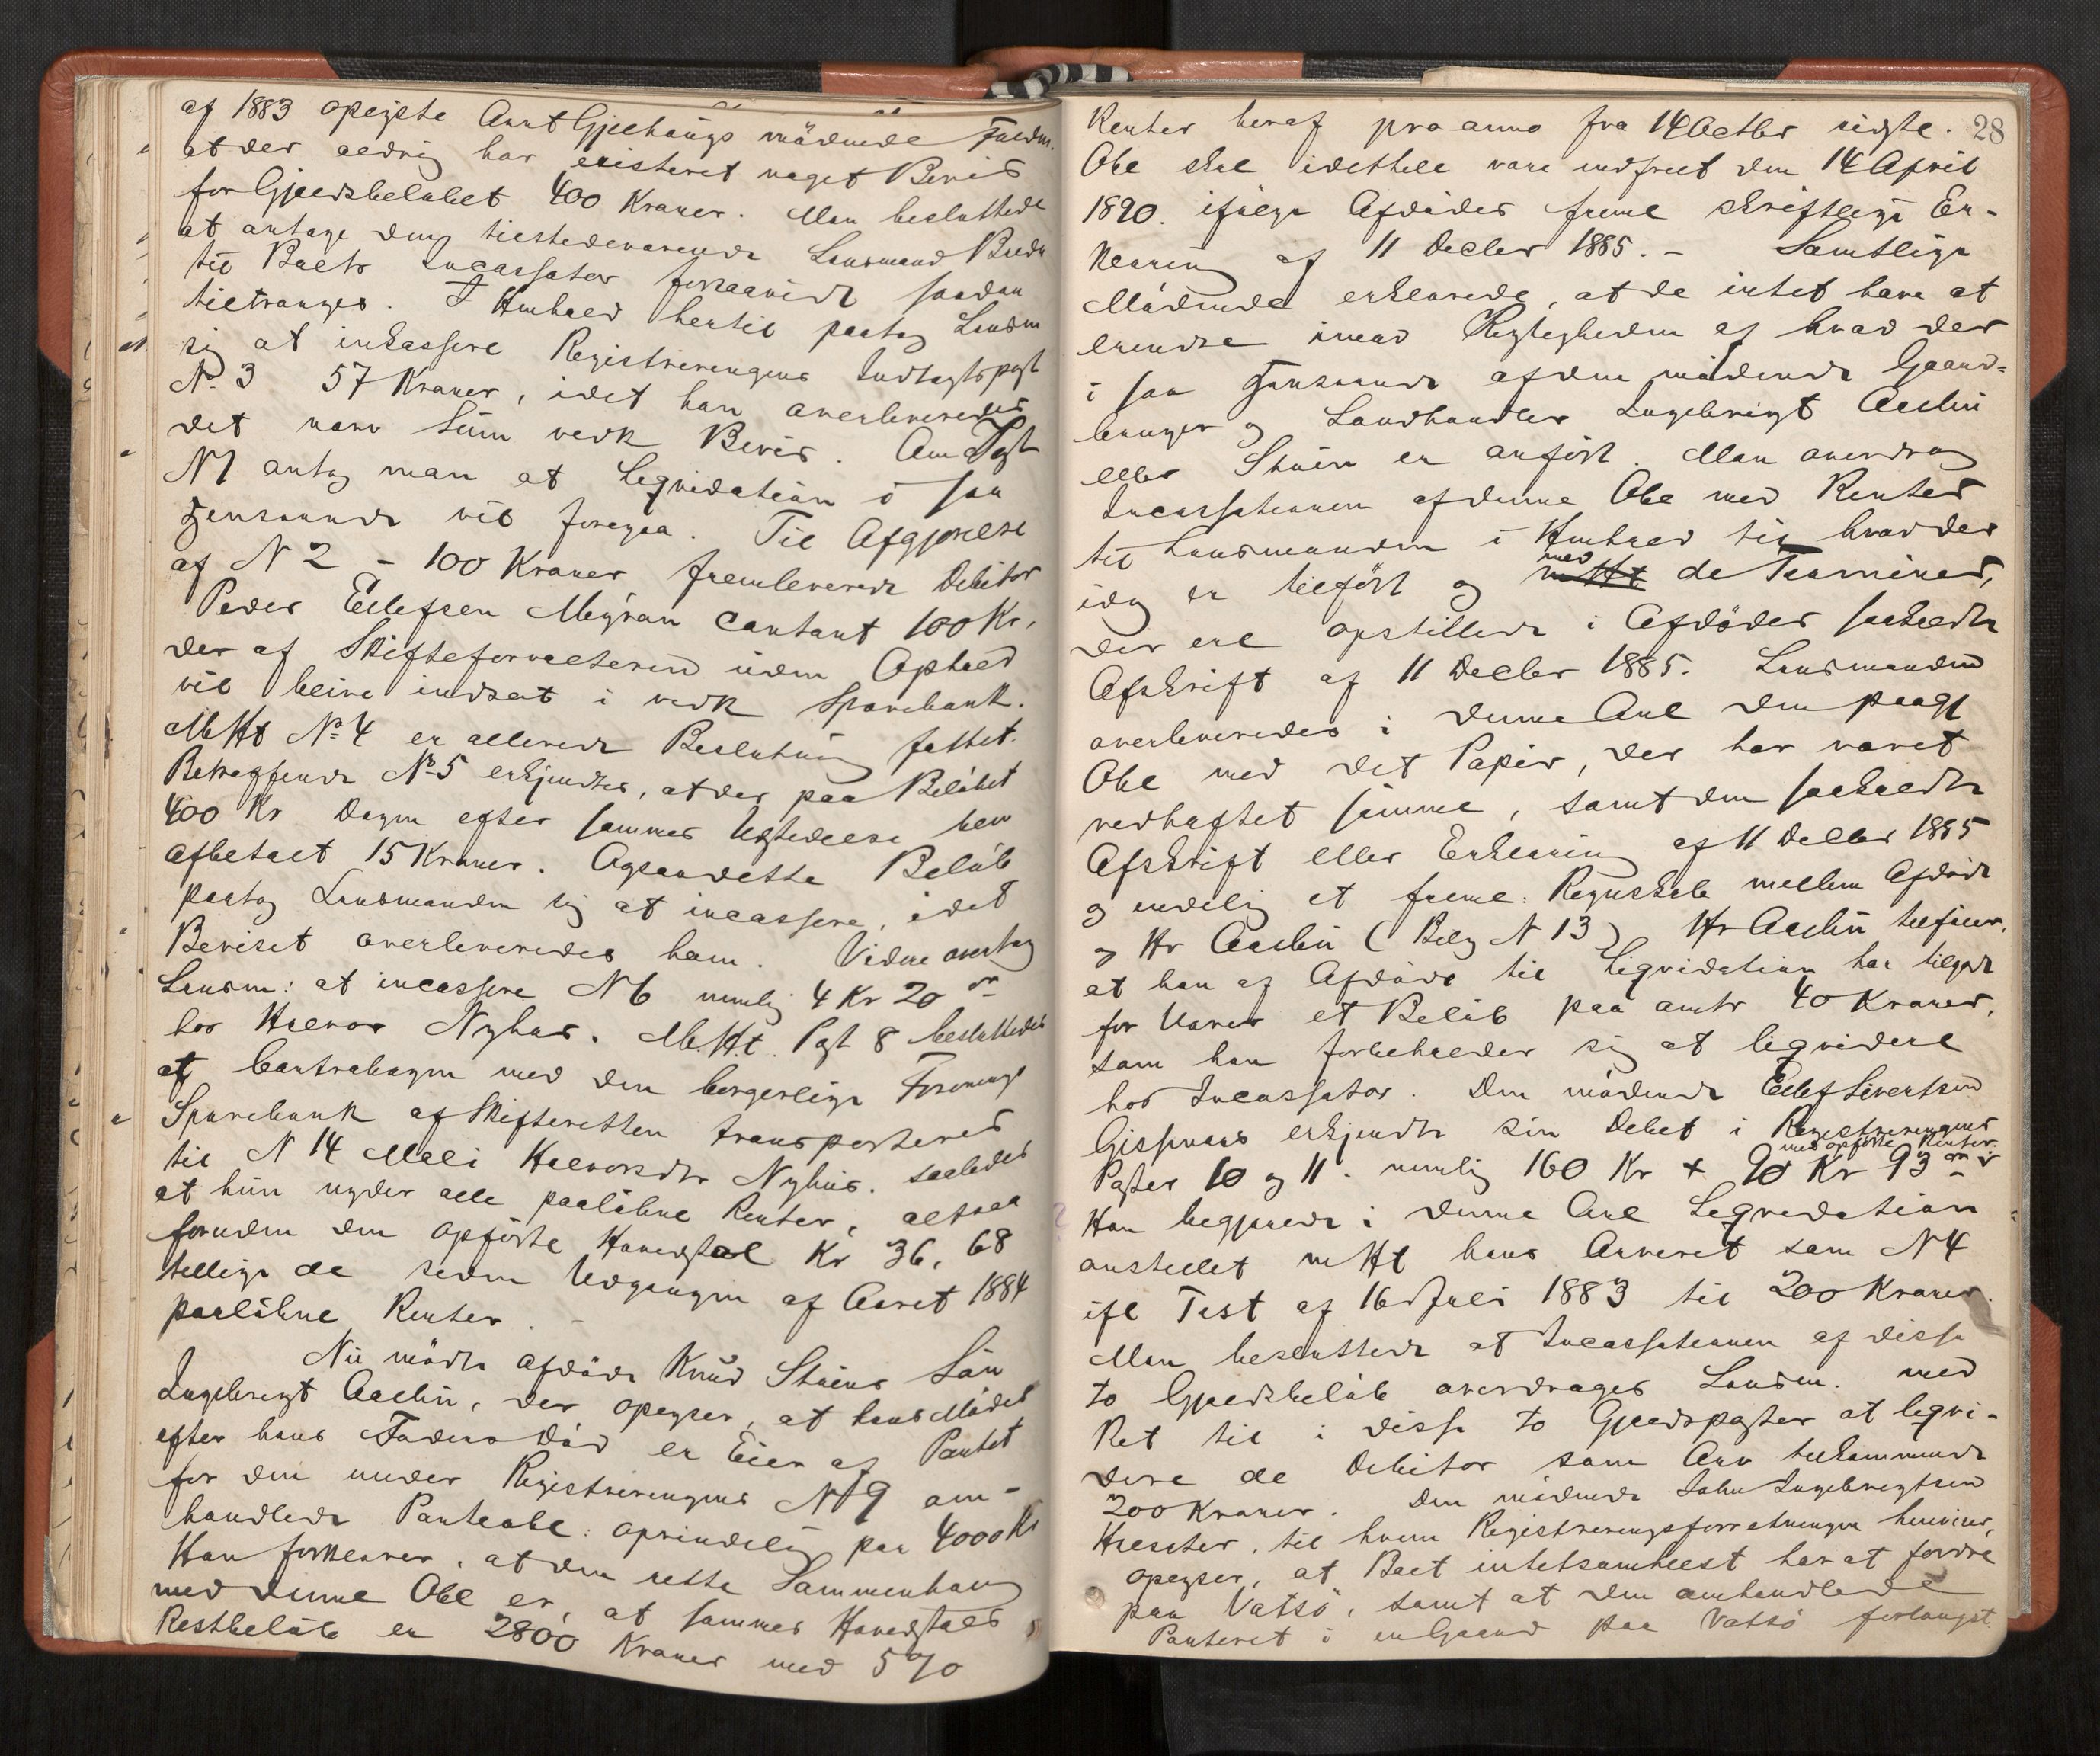 af 1883 opstejste Anut Gjeehaugs mödende Fuldm.
at der aldrig har existeret noget Bevis
for Gjældsbelöbet 400 Kroner. Man besluttede
at antage den tilstedeværende Lensmand Bredr
til Boets Incassator forsaavidt saadan
tiltrænges. I Henhold hertil paatog Lensm
sig at inkassere Registreringens Indtægtspost
No 3 57 Kroner, idet han overleveredes
det
N 1 antog man at Liqvidation i saa
Henseende vil foregaa. Til Afgjörelse
af N 2 - 100 Kroner fremleverede Debitor
Peder Ellefsen Meyran contant 100 Kr.
der af Skifteforvalteren uden Ophold
vil blive indsat i vedk Sparebank.
M Ht No 4 er allerede Beslutning fattet.
Betræffende No 5 erkjendtes, at der paa Belöbet
400 Kr Dagen efter sammes Udstedelse blev
afbetalt 15 Kroner. Ogsaa dette Belöb
paatog Lensmanden sig at incassere, idet
Beviset overleveredes ham. Videre overtog
Lensm: at incassere N 6 nemlig 4 Kr 20 ør
hos Halvor Nyhus. M.Ht. Post 8 besluttedes
at Contrabogen med den borgerlige Forenings
Sparebank af Skifteretten transporteres
til N 14 Mali Halvorsdtr Nyhus. saaledes
at hun nyder alle paalöbne Renter, altsaa
foruden den opförte Hovedstol Kr 36,68
tillige de siden Udgangen af Aaret 1884
paalöbne Renter. -
Nu mödte afdöde Knud Stuens Sön
Ingebregt Aaslun, der oplyser, at hans Moder
efter hans Faders död er Eier af Pantet
for den under Registreringens N 9 om-
handlede Panteobl: oprindelig paa 4000 Kr
Han forklarer, at den rette Sammenhæng
med denne Obl er, at sammes Hovedstols
Restbelöb er 2800 Kroner med 5 %
28
Renter heraf pro anno fra 14 Octbr sidstl.
Obl skal idethele være indfriet den 14 April
1890. ifölge Afdödes freml skriftlige Er-
klæring af 11 Decbr 1885. - Samtlige
Mödende erklærede, at de intet have at
erindre imod Rigtigheden af hvad der
i saa Henseende af den mödende Gaard-
bruger og Landhandler Ingebrigt Aaslun
eller Stuen er anfört. Man overdrog
Incassationen af denne Obl med Renter
til Lensmanden i Henhold til hvad der
idag er tilfört og med de Terminer,
der ere opstillede i Afdödes saakaldte
Afskrift af 11 Decbr 1885. Lensmanden
overleveredes i denne Anl den paagj
Obl med det Papir, der har været
vedhæftet samme, samt den saakaldte
Afskrift eller Erklæring af 11 Decbr 1885
og endelig et freml. Regnskab mellem Afdöde
og Hr Aaslun (Bilag N 13) Hr Aaslun tilföier,
at han af Afdöde til Liqvidation har tilgode
for Varer et Belöb paa omtr 40 Kroner,
som han forbeholder sig at liqvidere
hos Incassator. Den mödende Ellef Sivertsen
Gisnaas erkjendte sin Debet i Registreringens
Poster 10 og 11. nemlig 160 Kr + 90 Kr 93 ør med opförte Renter.
Han begjærede i denne Anl Liqvidation
anstillet m Ht hans Arveret som N 4
ifl Test af 16 Juli 1883 til 200 Kroner.
Man besluttede at Incassationen af disse
to Gjældsbelöb overdrages Lensm. med
Ret til i disse to Gjældsposter at liqvi-
dere de Debitor som Arv tilkommende
200 Kroner. Den mödende John Ingebregtsen
til hvem Registreringsforretningen henviser,
oplyser, at Boet intetsomhelst har at fordre
paa Vatsö, samt at den omhandlede
Panteret i en Gaard paa Vatsö forlængst